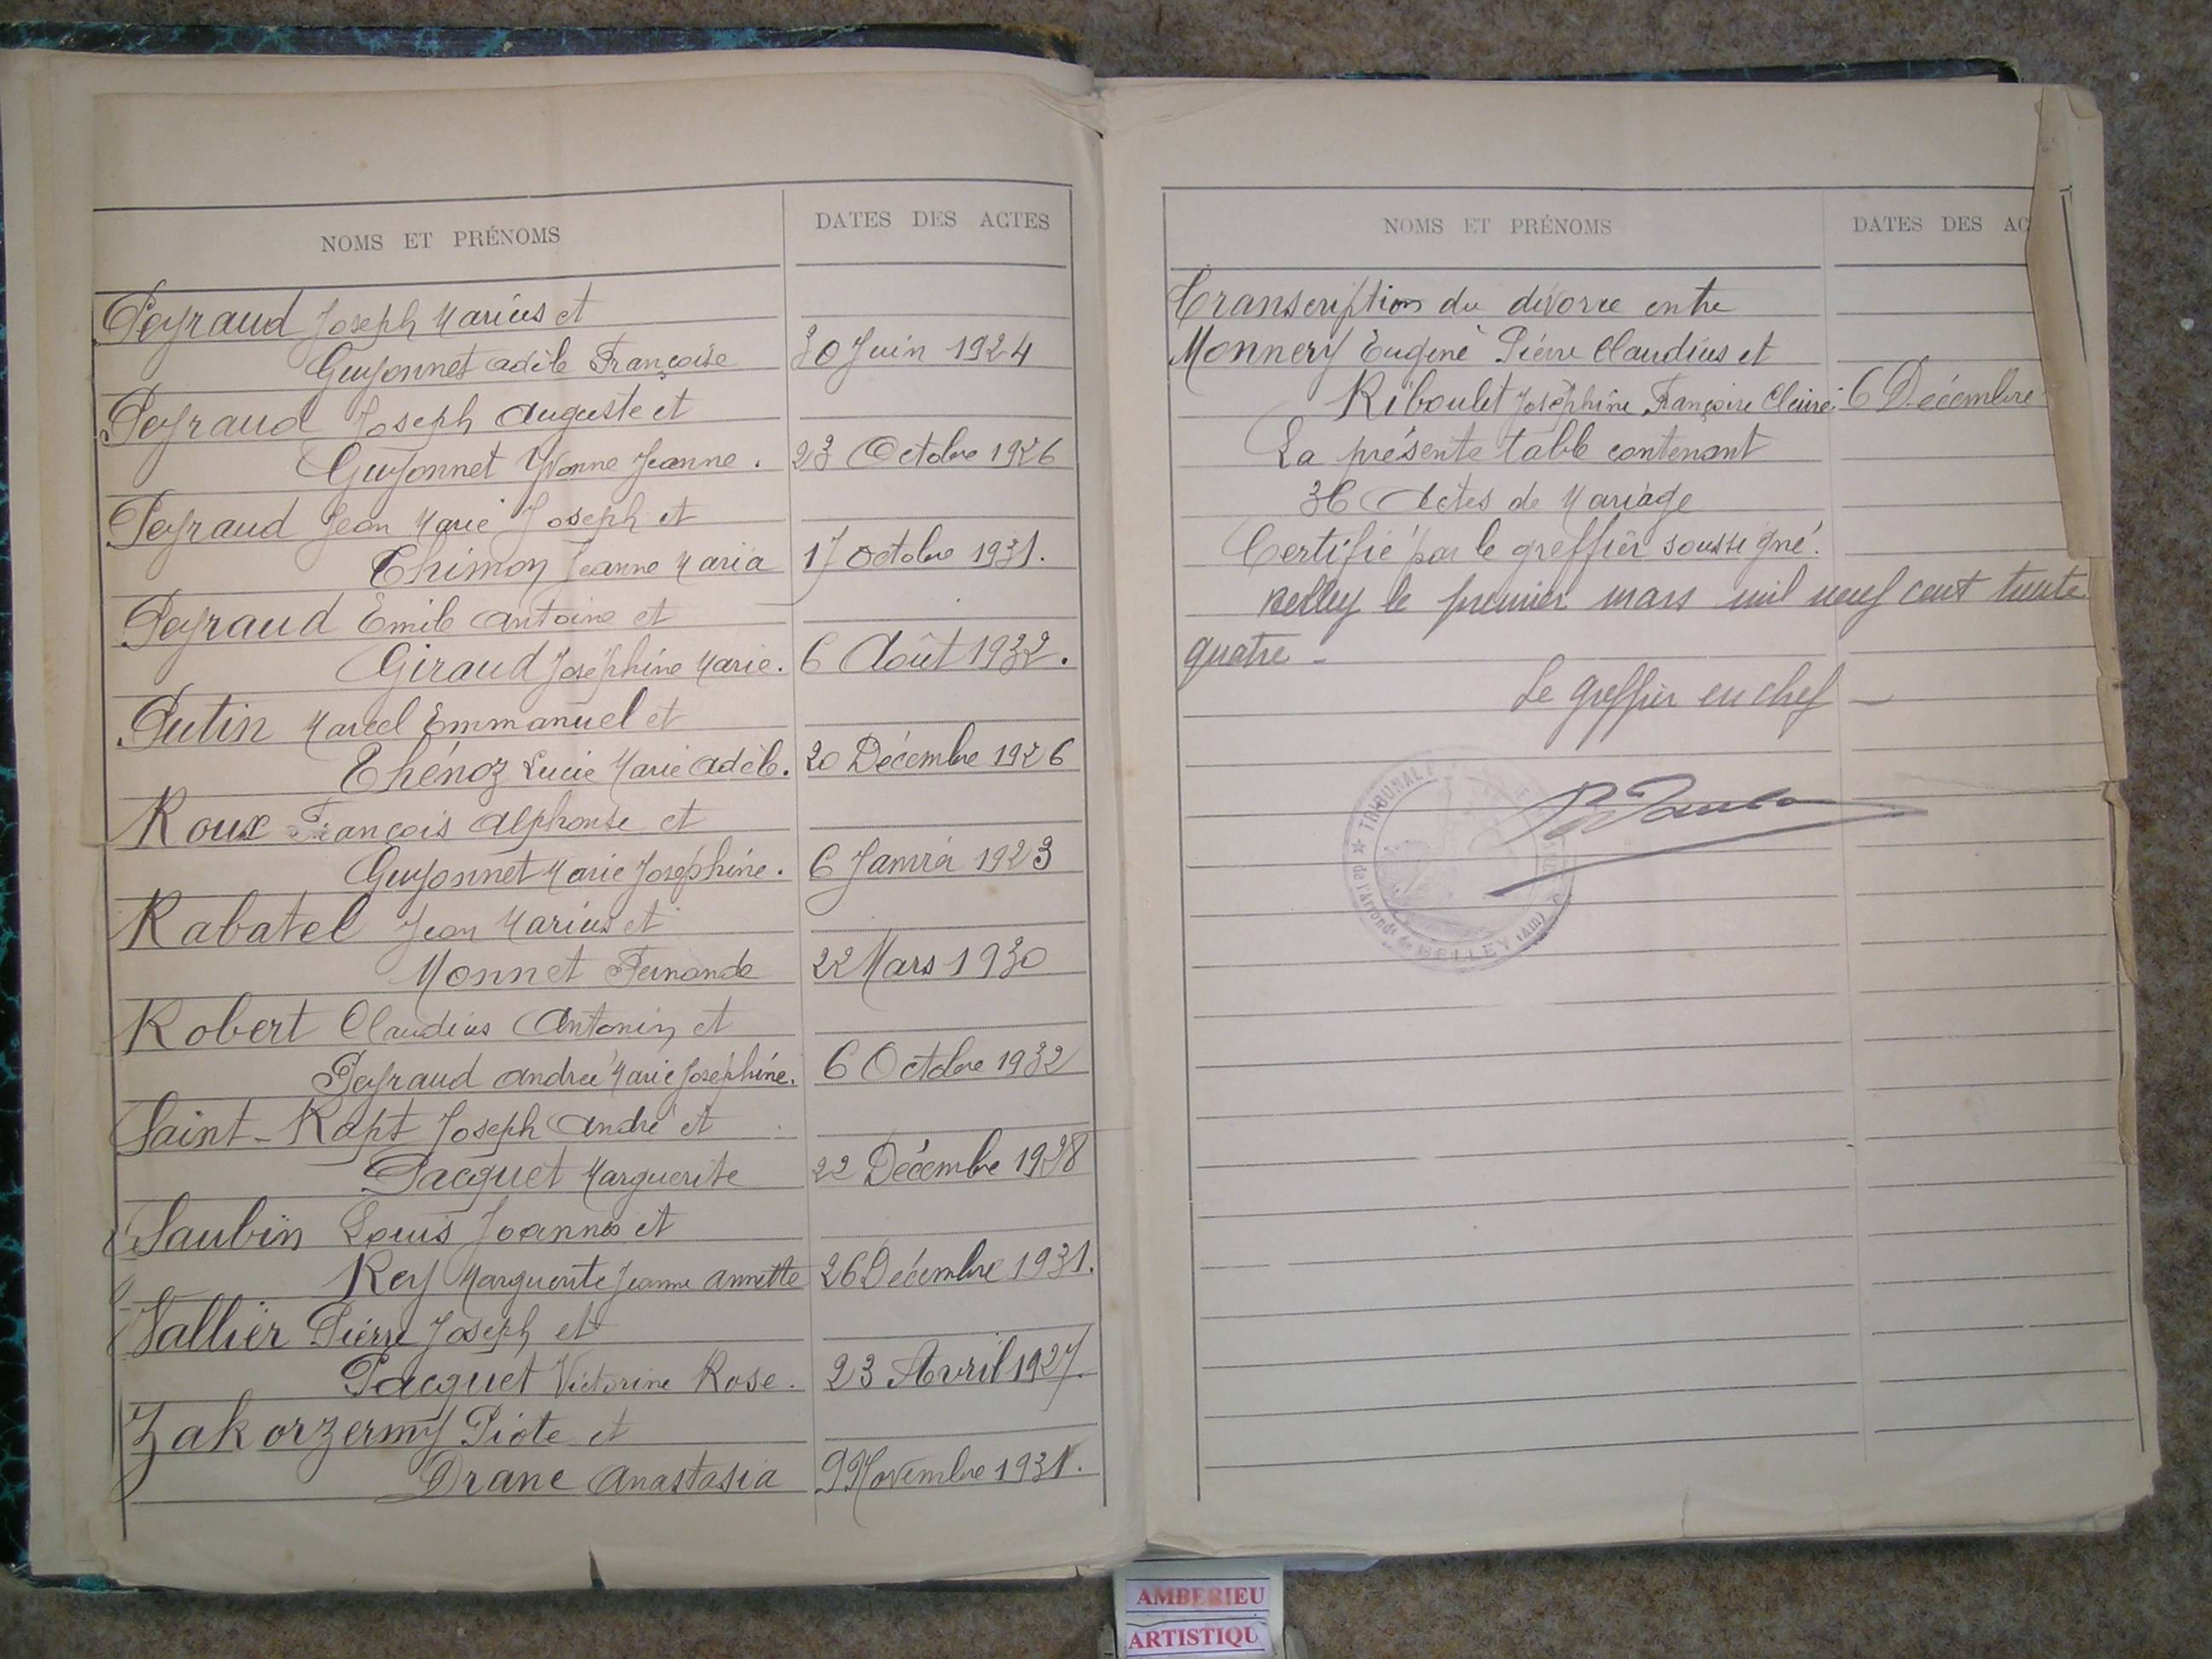 NOMS ET PRÉNOMS
DATES DES ACTES
Peyraud Joseph Marius et
Guyonnet Adèle Françoise 30 Juin 1924
Peyraud Joseph Auguste et
Guyonnet Yvonne Jeanne. 23 Octobre 1926
Peyraud Jean Marie Joseph et
Thimon Jeanne Maria 17 Octobre 1931.
Peyraud Emile Antoine et
Giraud Joséphine Marie. 6 Août 1932.
Putin Marcel Emmanuel et
Thénoz Lucie Marie Adèle. 20 Décembre 1926
Roux François Alphonse et
Guyonnet Marie Joséphine. 6 Janvier 1923
Rabatel Jean Marius et
Monnet Fernande 22 Mars 1930
Robert Claudius Antonin et
Peyraud Andrée Marie Joséphine. 6 Octobre 1932
Saint-Rapt Joseph André et
Pacquet Marguerite 22 Décembre 1928
Saubin Louis Joannès et
Rey Marguerite Jeanne Annette 26 Décembre 1931.
Vallier Pierre Joseph et
Pacquet Victorine Rose. 23 Avril 1927.
Zakorzermy Piote et
Drane Anastasia 9 Novembre 1931.
NOMS ET PRÉNOMS
DATES DES AC
Transcription du divorce entre
Monnery Eugène Pierre Claudius et
Riboulet Joséphine Françoise Claire. 6 Décembre
La présente table contenant
36 Actes de Mariage
Certifié par le greffier soussigné.
Belley le premier mars mil neuf cent trente
quatre -
Le greffier en chef -
TRIBUNAL
de l'Arrondt de BELLEY (Ain)
AMBERIEU
ARTISTIQU